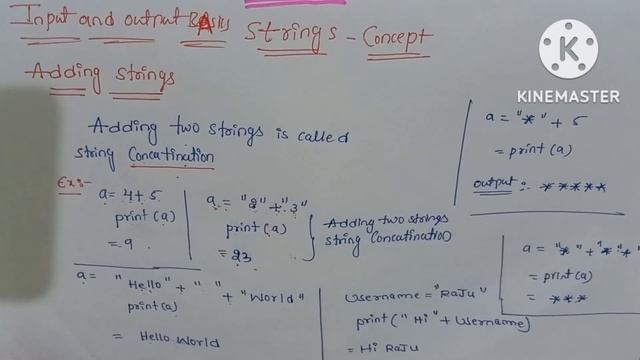 Input and output BAsics Strings - Concept
Adding strings
Adding two strings is called
string Concatination
Ex:-
a= 4+5
print(a)
= 9
a= "2"+"3"
print(a)
= 23
Adding two strings
string Concatination
a= "Hello"+" "+"World"
print(a)
= Hello World
Username="RaJu"
print("Hi"+Username)
= Hi RaJu
a= "*" + 5
= print(a)
output :- *****
a= "*"+"*"+"
= print(a)
= ***
KINEMASTER